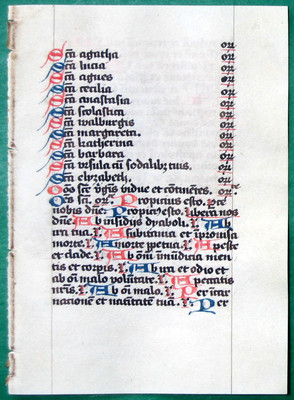 Scā agatha ori
Scā lucia ori
Scā agnes ori
Scā cecilia ori
Scā anastasia ori
Scā scolastica ori
Scā walburgis ori
Scā margareta ori
Scā katherina ori
Scā barbara ori
Scā ursula cū sodalibꝫ tuis. ori
Scā elyzabeth. ori
Oēs scē v̄gines vidue et cōtinētes. or
Oēs sci. or. Propicius esto. p̄ce
nobis dn̄e. Propici esto. libera nos
dn̄e. Ab insidijs dyaboli. Ab
ira tua. A subitanea et īprovisa
morte. A morte ꝑpetua. A peste
et clade. Ab om̄i īmūdicia men
tis et corpis. Ab ira et odio et
ab oī mala volūtate. A peccatis
nr̄is. Ab oī malo. Per īcar
nacionē et nativitatē tuā. Per